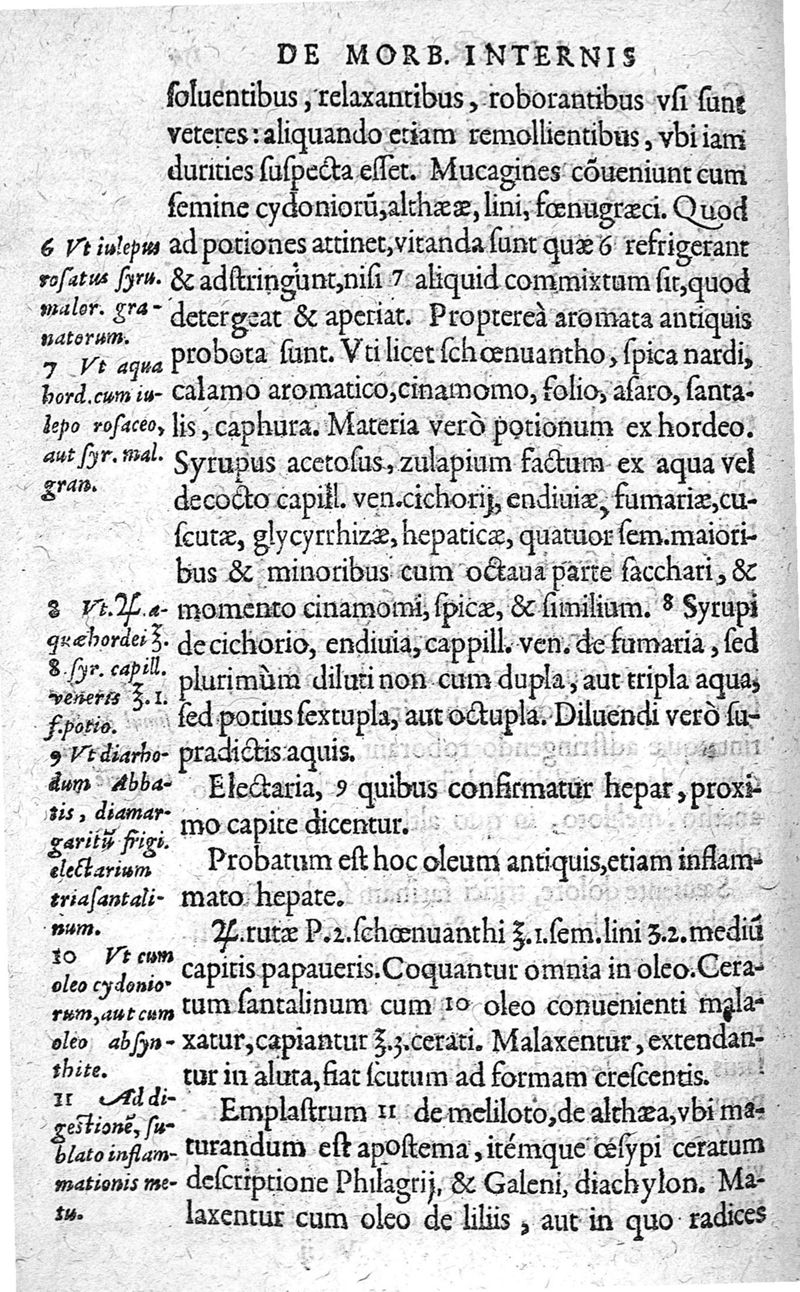 DE MORB. INTERNIS
ſoluentibus, relaxantibus, roborantibus vſi ſunt
veteres: aliquando etiam remollientibus, vbi iam
durities ſuſpecta eſſet. Mucagines cõueniunt cum
ſemine cydoniorũ, althææ, lini, fœnugræci. Quod
ad potiones attinet, vitanda ſunt quæ 6 refrigerant
& adſtringunt, niſi 7 aliquid commixtum ſit, quod
detergeat & aperiat. Proptereà aromata antiquis
probota ſunt. Vti licet ſchœnuantho, ſpica nardi,
calamo aromatico, cinamomo, folio, aſaro, ſanta-
lis, caphura. Materia verò potionum ex hordeo.
Syrupus acetoſus, zulapium factum ex aqua vel
decocto capill. ven. cichorij, endiuiæ, fumariæ, cu-
ſcutæ, glycyrrhizæ, hepaticæ, quatuor ſem. maiori-
bus & minoribus cum octaua parte ſacchari, &
momento cinamomi, ſpicæ, & ſimilium. 8 Syrupi
de cichorio, endiuia, cappill. ven. de fumaria, ſed
plurimùm diluti non cum dupla, aut tripla aqua,
ſed potius ſextupla, aut octupla. Diluendi verò ſu-
pradictis aquis.
Electaria, 9 quibus confirmatur hepar, proxi-
mo capite dicentur.
Probatum eſt hoc oleum antiquis, etiam inflam-
mato hepate.
℞. rutæ P. 2. ſchœnuanthi ℥. 1. ſem. lini ʒ. 2. mediũ
capitis papaueris. Coquantur omnia in oleo. Cera-
tum ſantalinum cum 10 oleo conuenienti mala-
xatur, capiantur ℥. 3. cerati. Malaxentur, extendan-
tur in aluta, fiat ſcutum ad formam creſcentis.
Emplaſtrum 11 de meliloto, de althæa, vbi ma-
turandum eſt apoſtema, itémque œſypi ceratum
deſcriptione Philagrij, & Galeni, diachylon. Ma-
laxentur cum oleo de liliis, aut in quo radices
6 Vt iulepus
roſatus ſyru.
malor. gra-
natorum.
7 Vt aqua
hord. cum iu-
lepo roſaceo,
aut ſyr. mal.
gran.
8 Vt. ℞. a-
quæ hordei ℥.
8. ſyr. capill.
veneris ℥. 1.
f. potio.
9 Vt diarho-
dum Abba-
tis, diamar-
garitũ frigi.
electarium
triaſantali-
num.
10 Vt cum
oleo cydonio-
rum, aut cum
oleo abſyn-
thite.
11 Ad di-
geſtionẽ, ſu-
blato inflam-
mationis me-
tu.